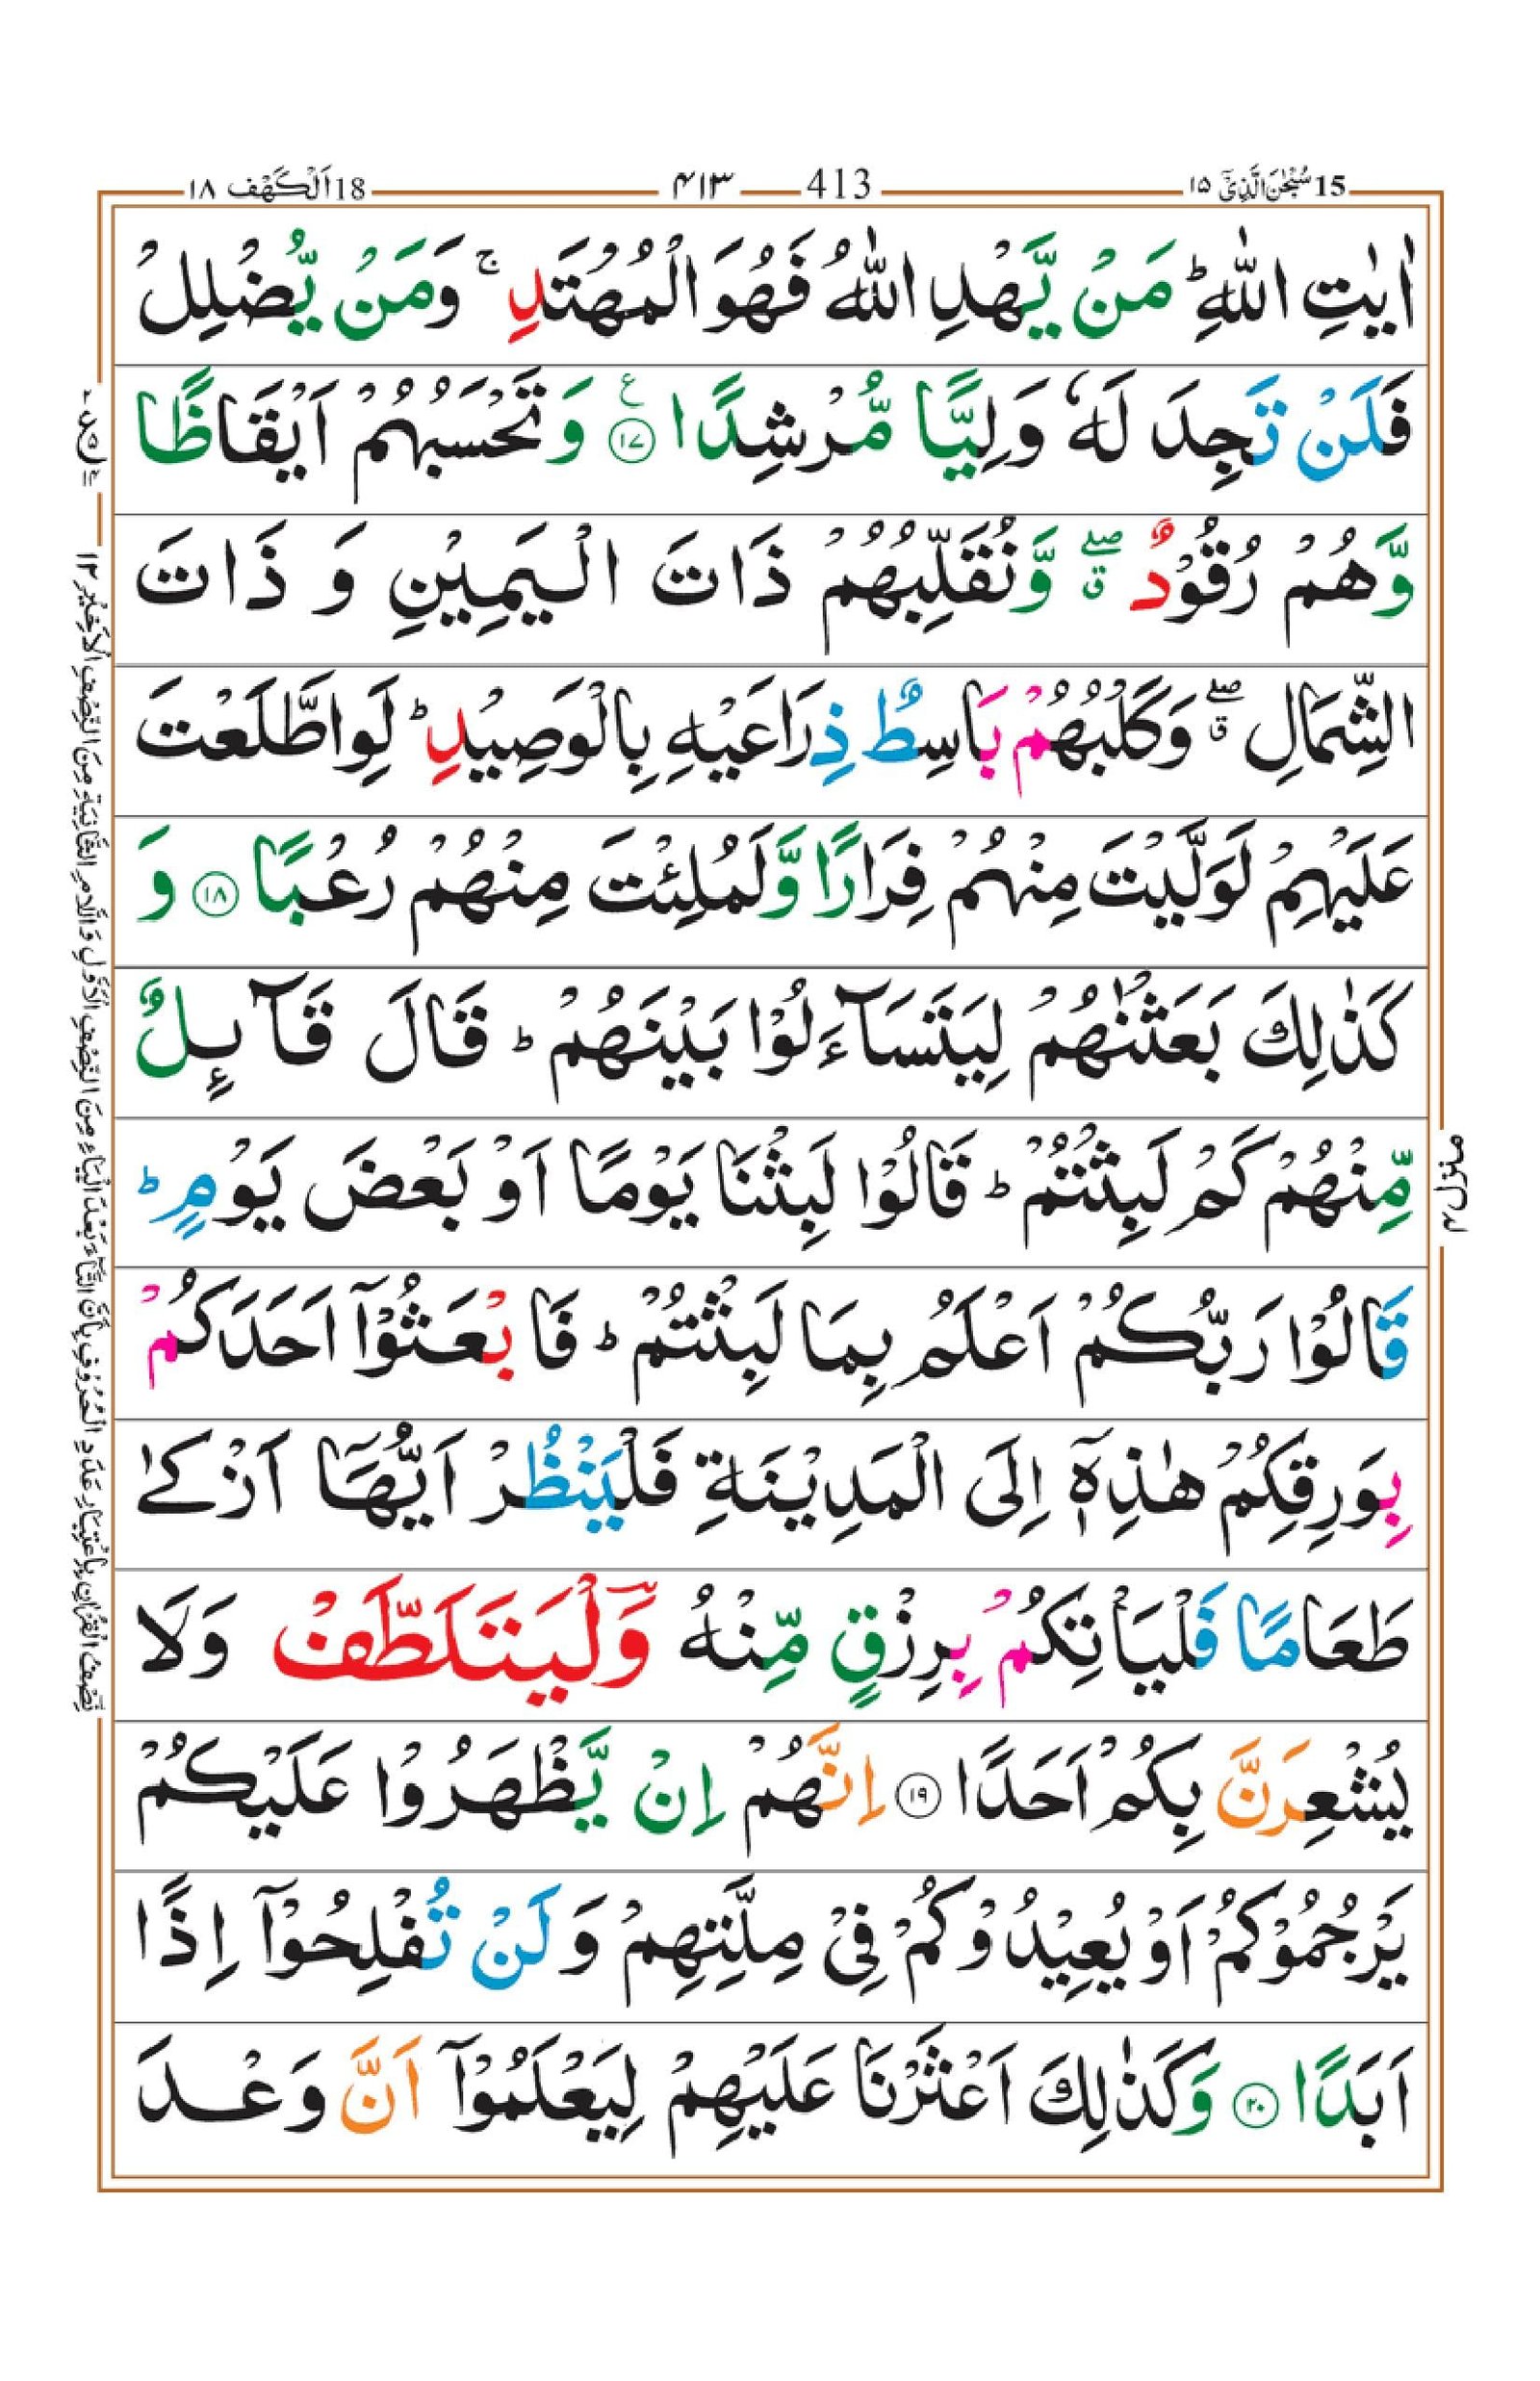 15 سُبْحٰنَ الَّذِیْۤ ۱۵
413 ۴۱۳
18 اَلْكَهْف ۱۸
اٰیٰتِ اللّٰهِ ؕ مَنْ یَّهْدِ اللّٰهُ فَهُوَ الْمُهْتَدِ ۚ وَمَنْ یُّضْلِلْ
فَلَنْ تَجِدَ لَهٗ وَلِیًّا مُّرْشِدًا ۧ ۱۷ وَتَحْسَبُهُمْ اَیْقَاظًا
وَّهُمْ رُقُوْدٌ ۖۗ وَّنُقَلِّبُهُمْ ذَاتَ الْیَمِیْنِ وَ ذَاتَ
الشِّمَالِ ۖۗ وَكَلْبُهُمْ بَاسِطٌ ذِرَاعَیْهِ بِالْوَصِیْدِ ؕ لَوِاطَّلَعْتَ
عَلَیْهِمْ لَوَلَّیْتَ مِنْهُمْ فِرَارًا وَّلَمُلِئْتَ مِنْهُمْ رُعْبًا ۱۸ وَ
كَذٰلِكَ بَعَثْنٰهُمْ لِیَتَسَآءَلُوْا بَیْنَهُمْ ؕ قَالَ قَآىِٕلٌ
مِّنْهُمْ كَمْ لَبِثْتُمْ ؕ قَالُوْا لَبِثْنَا یَوْمًا اَوْ بَعْضَ یَوْمٍ ؕ
قَالُوْا رَبُّكُمْ اَعْلَمُ بِمَا لَبِثْتُمْ ؕ فَابْعَثُوْۤا اَحَدَكُمْ
بِوَرِقِكُمْ هٰذِهٖۤ اِلَی الْمَدِیْنَةِ فَلْیَنْظُرْ اَیُّهَاۤ اَزْكٰی
طَعَامًا فَلْیَاْتِكُمْ بِرِزْقٍ مِّنْهُ وَلْیَتَلَطَّفْ وَلَا
یُشْعِرَنَّ بِكُمْ اَحَدًا ۱۹ اِنَّهُمْ اِنْ یَّظْهَرُوْا عَلَیْكُمْ
یَرْجُمُوْكُمْ اَوْ یُعِیْدُوْكُمْ فِیْ مِلَّتِهِمْ وَلَنْ تُفْلِحُوْۤا اِذًا
اَبَدًا ۲۰ وَكَذٰلِكَ اَعْثَرْنَا عَلَیْهِمْ لِیَعْلَمُوْۤا اَنَّ وَعْدَ
منزل ۴
نِصْفُ الْقُرْاٰنِ بِاِعْتِبَارِ عَدَدِ الْحُرُوْفِ بِاَنَّ التَّآءَ بَعْدَ الْیَآءِ مِنَ النِّصْفِ الْاَوَّلِ وَاللَّامِ الثَّانِیَةِ مِنَ النِّصْفِ الْاَخِیْرِ ۱۲